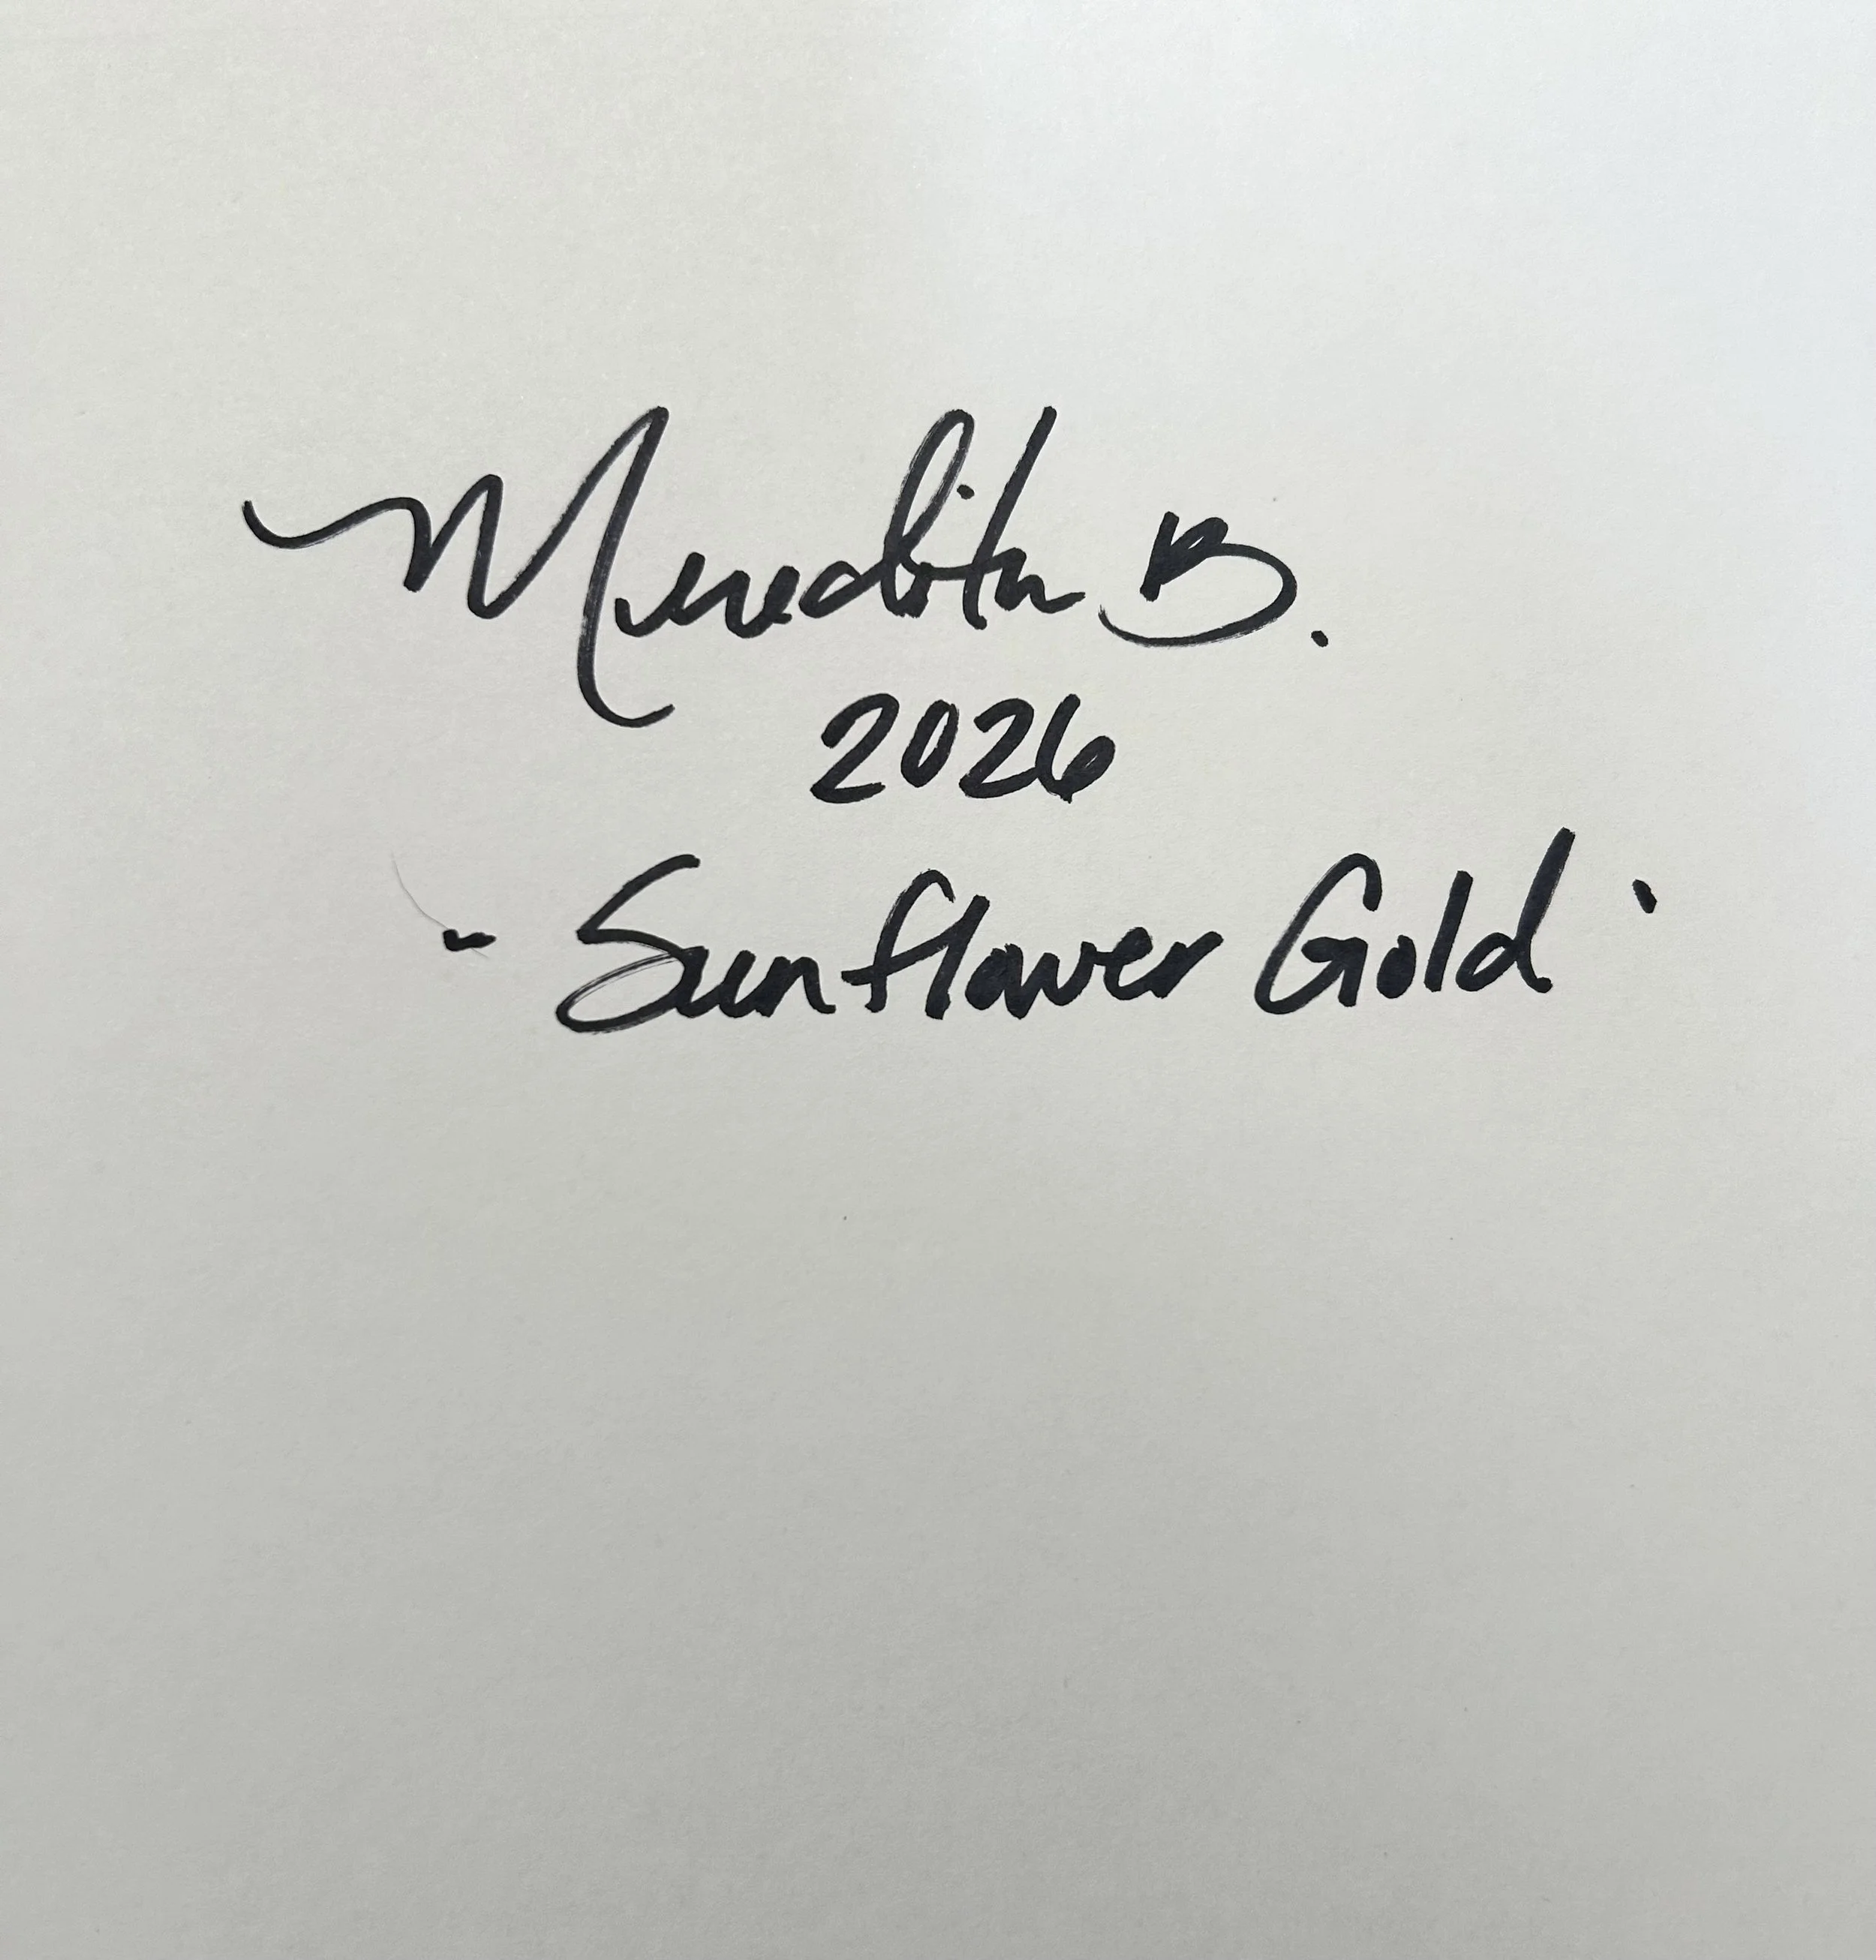 Meredith B.
2026
- Sunflower Gold -